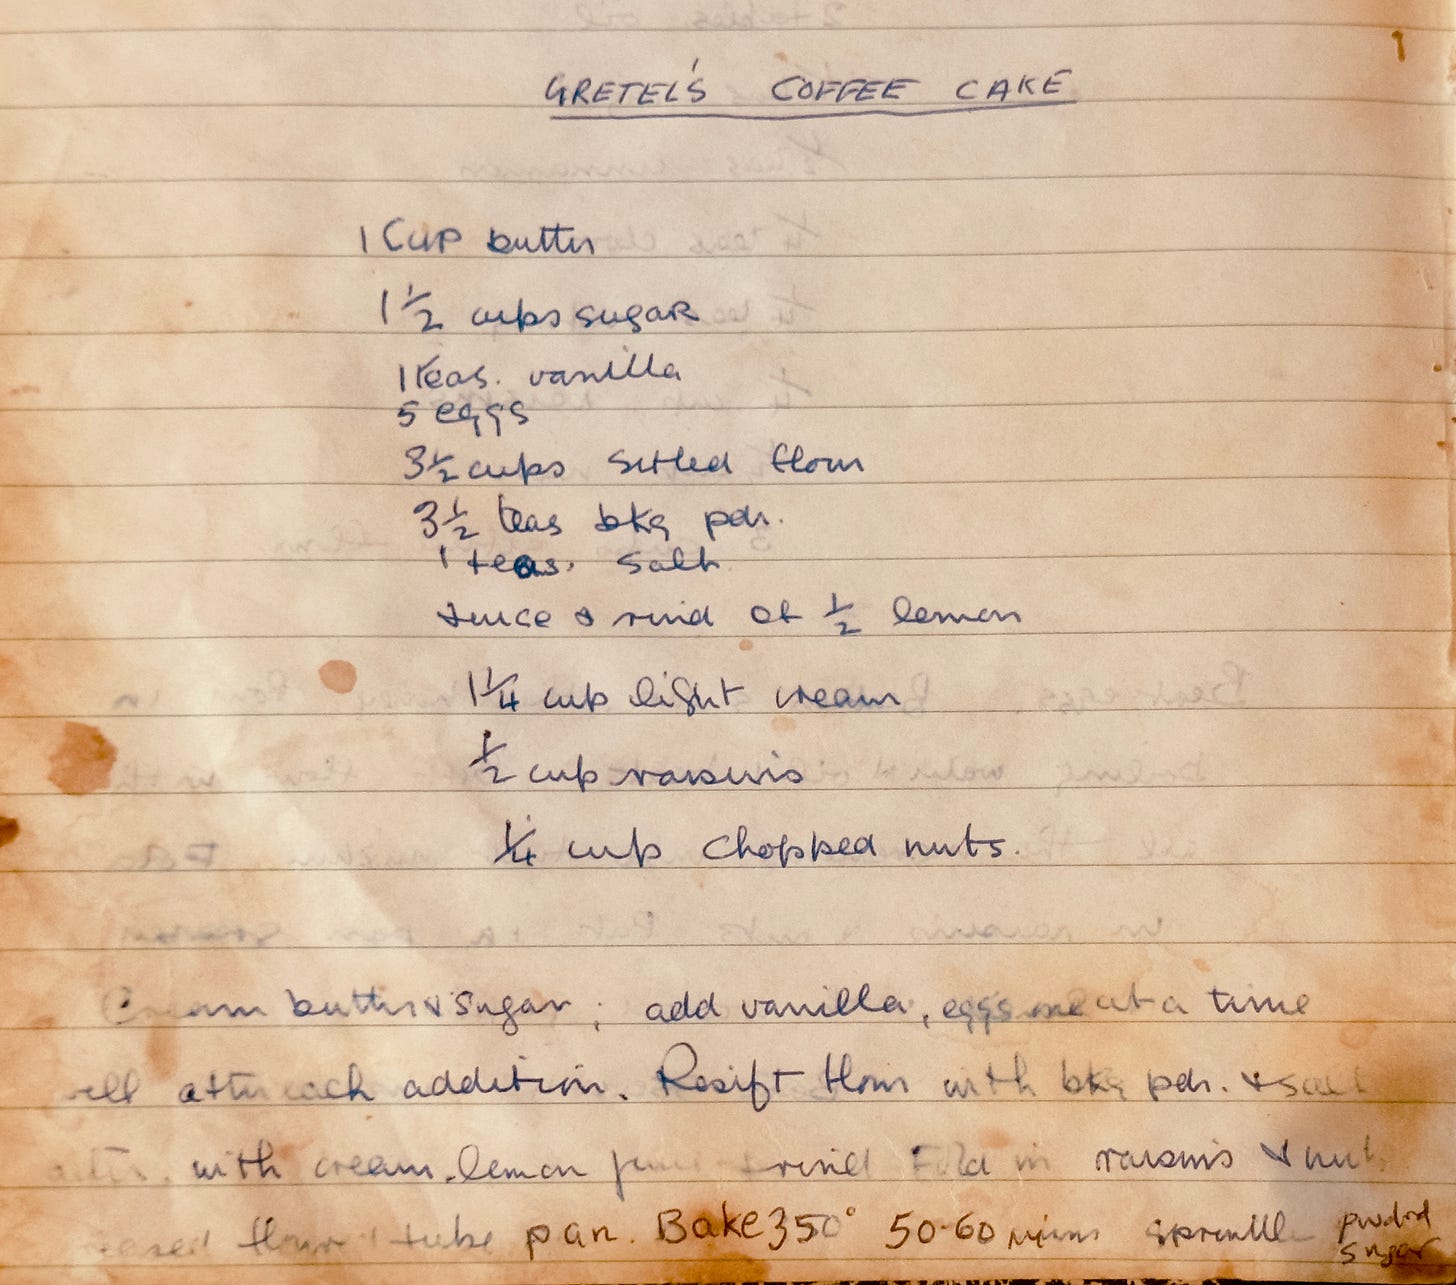 GRETEL'S COFFEE CAKE
1 Cup butter
1 1/2 cups sugar
1 teas. vanilla
5 eggs
3 1/2 cups sifted flour
3 1/2 teas bkg pdr.
1 teas. salt
Juice & rind of 1/2 lemon
1 1/4 cup light cream
1/2 cup raisins
1/4 cup chopped nuts.
Cream butter & sugar; add vanilla, eggs one at a time
after each addition. Resift flour with bkg pdr. & salt
with cream, lemon juice & rind Fold in raisins & nuts
flour tube pan. Bake 350° 50-60 mins sprinkle pwdrd
sugar